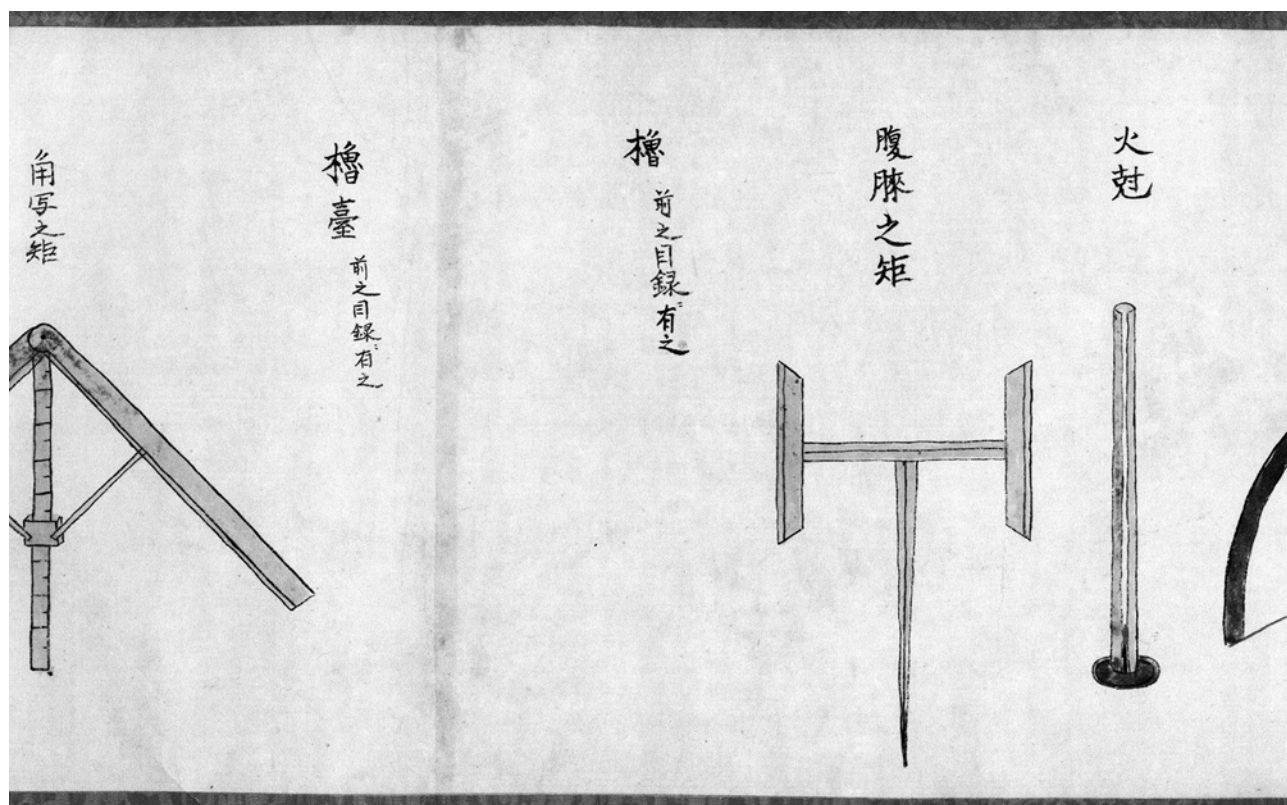 火尅
腹脥之矩
櫓
前之目録ニ有之
櫓臺
前之目録ニ有之
角写之矩